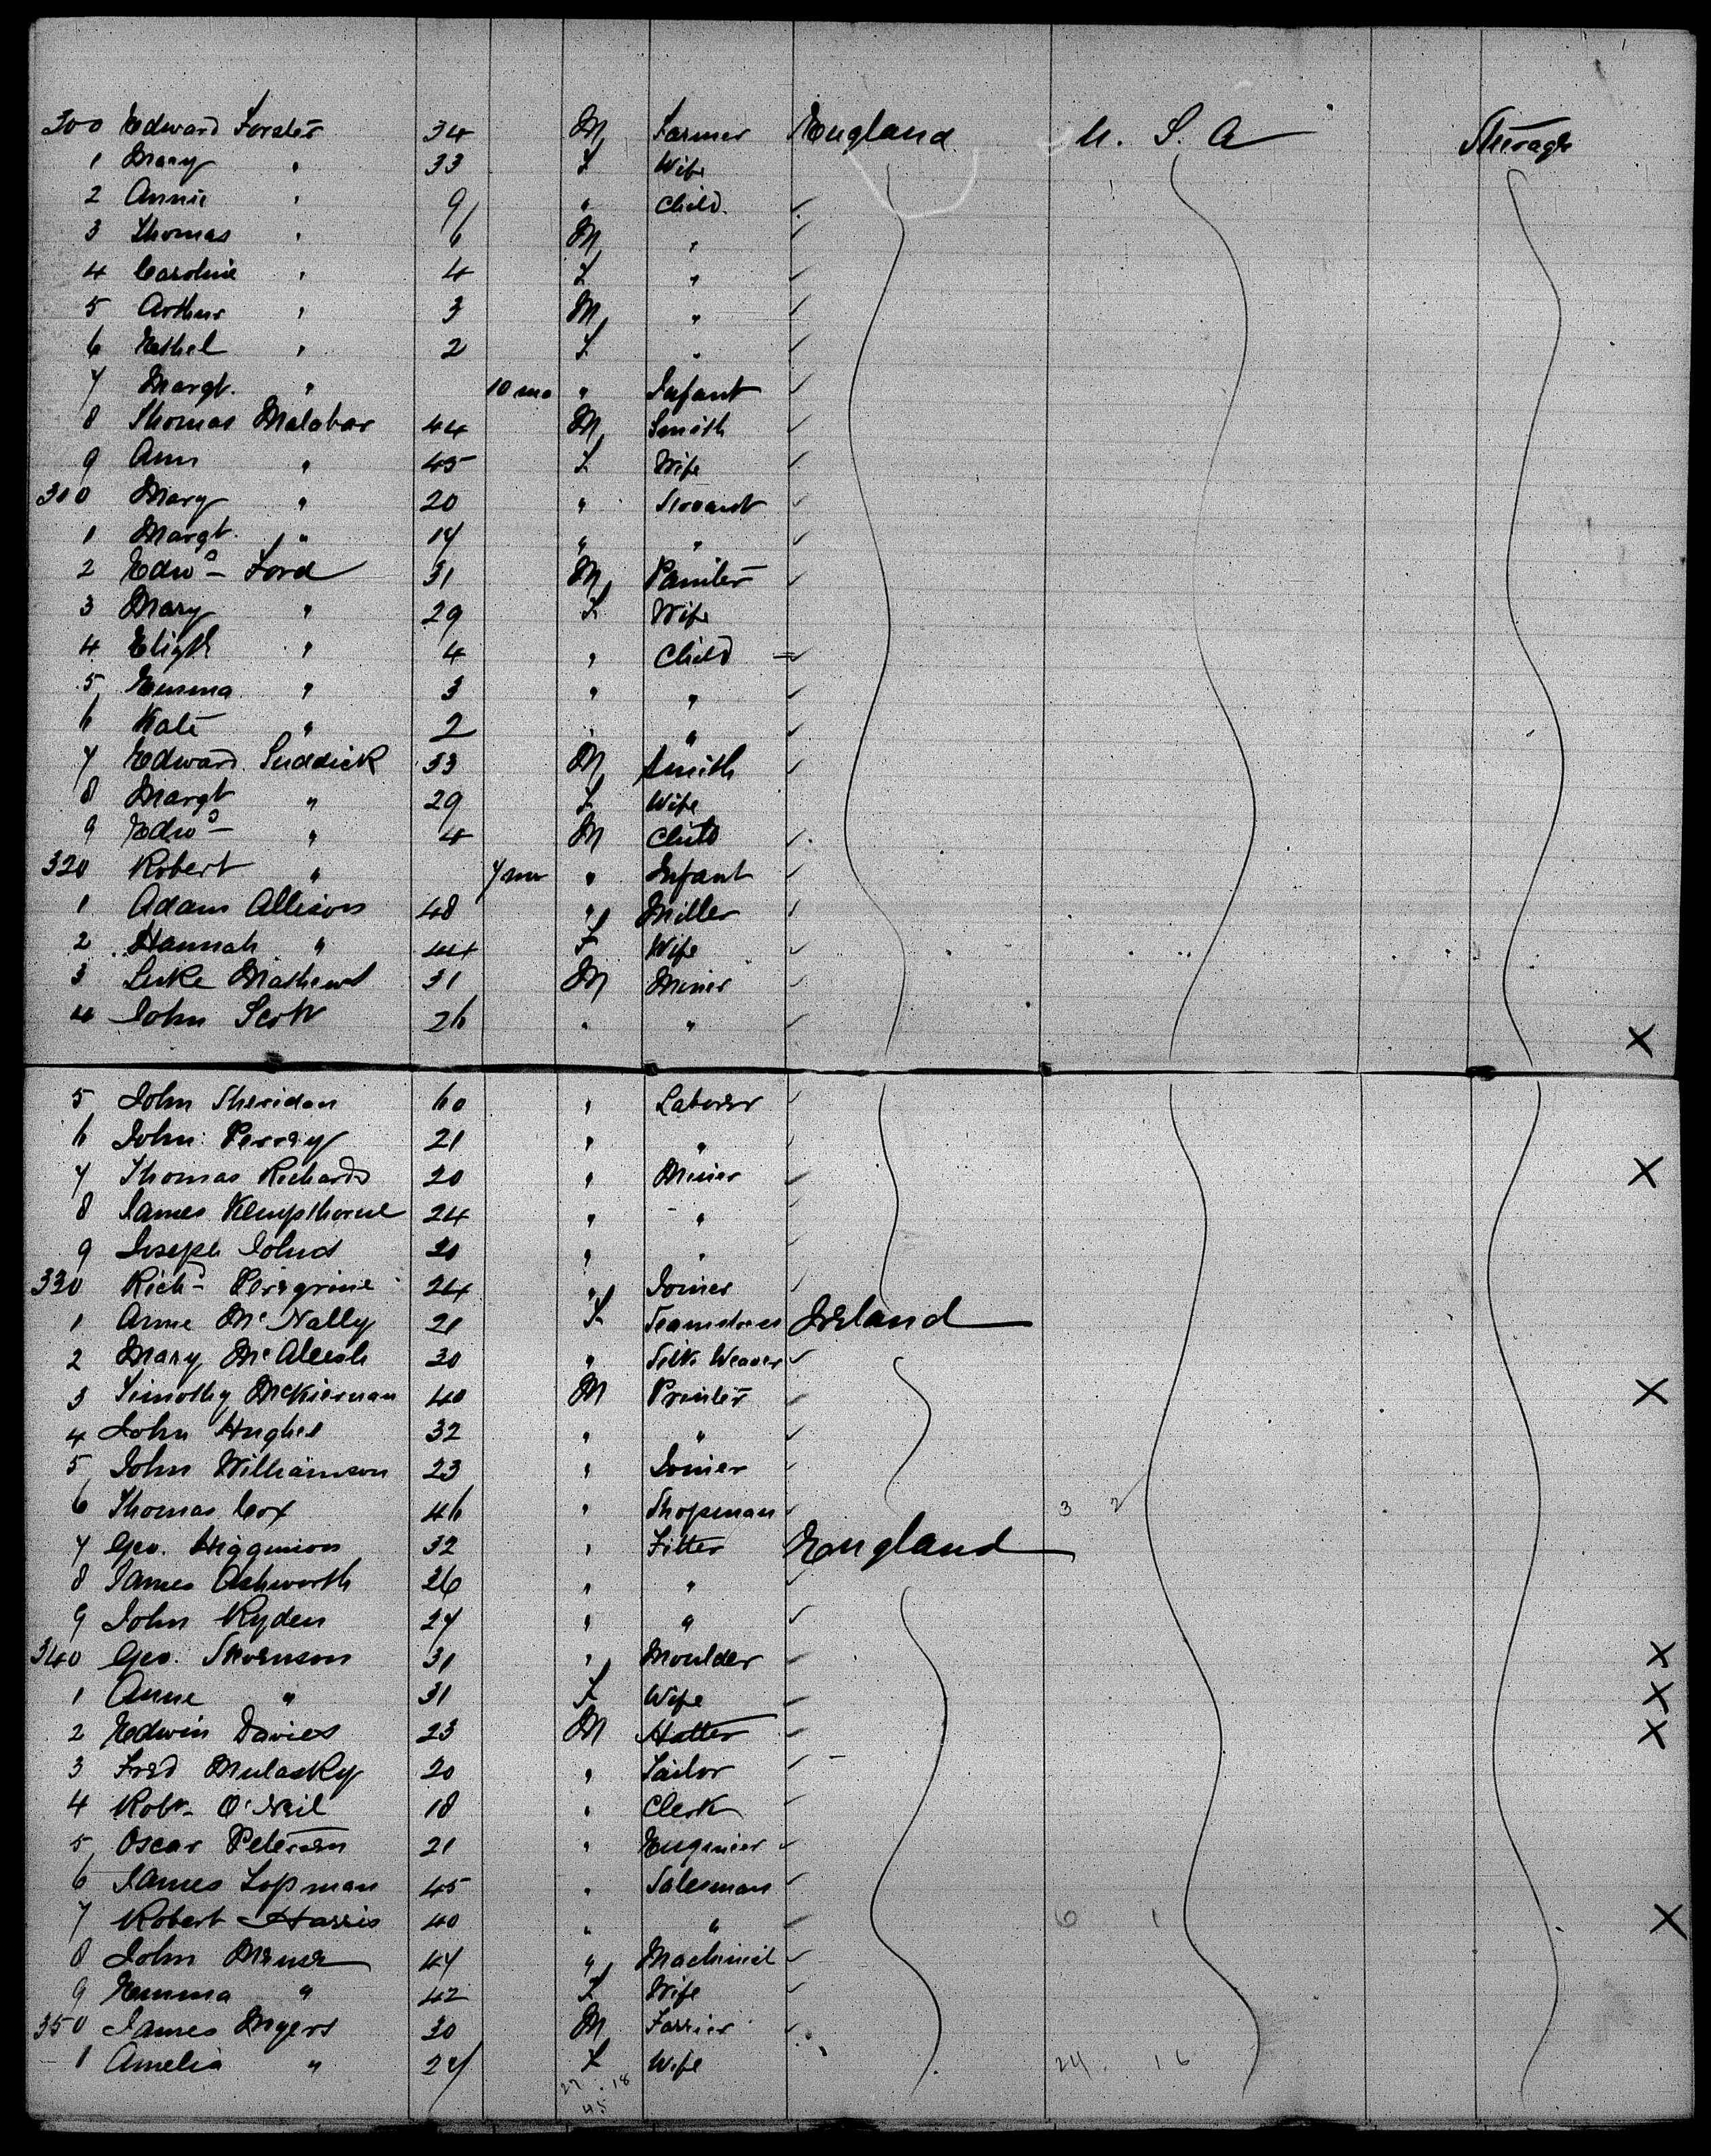 300 Edward Forster 34 M Farmer England U. S. A Steerage
1 Mary " 33 F Wife
2 Annie " 9 " Child
3 Thomas " 6 M "
4 Caroline " 4 F "
5 Arthur " 3 M "
6 Ethel " 2 F "
7 Margt. " 10 mo " Infant
8 Thomas Malabar 44 M Smith
9 Ann " 45 F Wife
310 Mary " 20 " Servant
1 Margt. " 17 " "
2 Edwd Ford 31 M Painter
3 Mary " 29 F Wife
4 Elizth " 4 " Child
5 Emma " 3 " "
6 Kate " 2 " "
7 Edward Suddick 33 M Smith
8 Margt " 29 F Wife
9 Edwd " 4 M Child
320 Robert " 7 mo " Infant
1 Adam Allison 48 " Miller
2 Hannah " 44 F Wife
3 Luke Mathews 31 M Miner
4 John Scott 26 " " X
5 John Sheridan 60 " Laborer
6 John Perray 21 " "
7 Thomas Richards 20 " Miner X
8 James Kempthorne 24 " "
9 Joseph Johns 20 " "
330 Richd Peregrine 24 " Joiner
1 Anne McNally 21 F Seamstress Ireland
2 Mary McAleish 30 " Silk Weaver
3 Timothy McKiernan 40 M Printer X
4 John Hughes 32 " "
5 John Williamson 23 " Joiner
6 Thomas Cox 46 " Shopman 3 2
7 Geo. Higginson 32 " Fitter England
8 James Ashworth 26 " "
9 John Ryden 27 " "
340 Geo. Stevenson 31 " Moulder X
1 Anne " 31 F Wife X
2 Edwin Davies 23 M Hatter X
3 Fred Mulasky 20 " Tailor
4 Robt O'Neil 18 " Clerk
5 Oscar Petersen 21 " Engineer
6 James Lopman 45 " Salesman
7 Robert Harris 40 " " 6 1 X
8 John 47 " Machinist
9 Emma " 42 F Wife
350 James Myers 30 M Farrier
1 Amelia " 27 F Wife 24 16
27 . 18
45